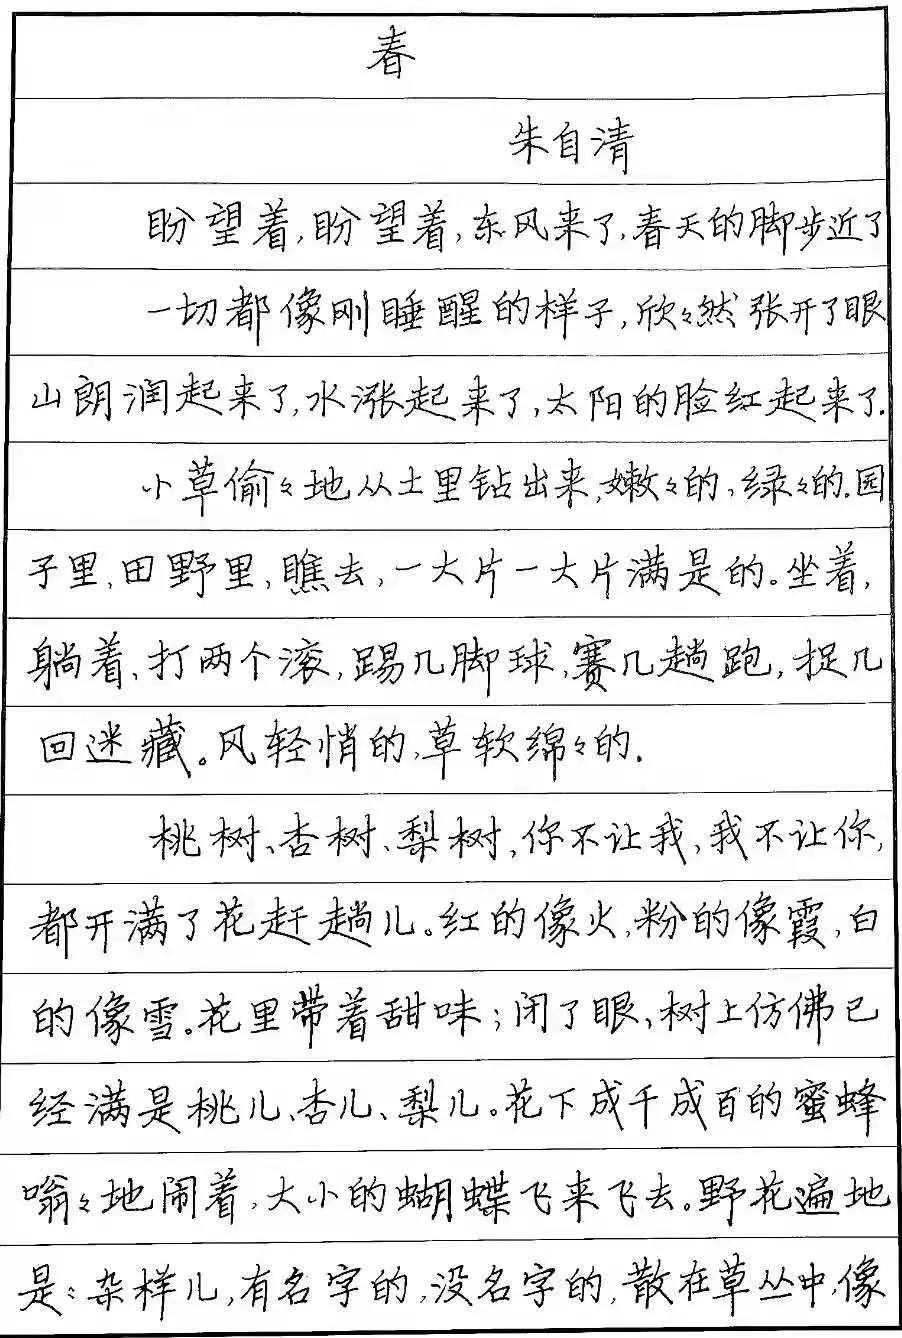 春
朱自清
盼望着,盼望着,东风来了,春天的脚步近了
一切都像刚睡醒的样子,欣々然张开了眼
山朗润起来了,水涨起来了,太阳的脸红起来了.
小草偷々地从土里钻出来,嫩々的,绿々的.园
子里,田野里,瞧去,一大片一大片满是的。坐着,
躺着,打两个滚,踢几脚球,赛几趟跑,捉几
回迷藏。风轻悄的,草软绵々的.
桃树、杏树、梨树,你不让我,我不让你,
都开满了花赶趟儿。红的像火,粉的像霞,白
的像雪。花里带着甜味;闭了眼,树上仿佛已
经满是桃儿、杏儿、梨儿。花下成千成百的蜜蜂
嗡々地闹着,大小的蝴蝶飞来飞去。野花遍地
是:杂样儿,有名字的,没名字的,散在草丛中,像